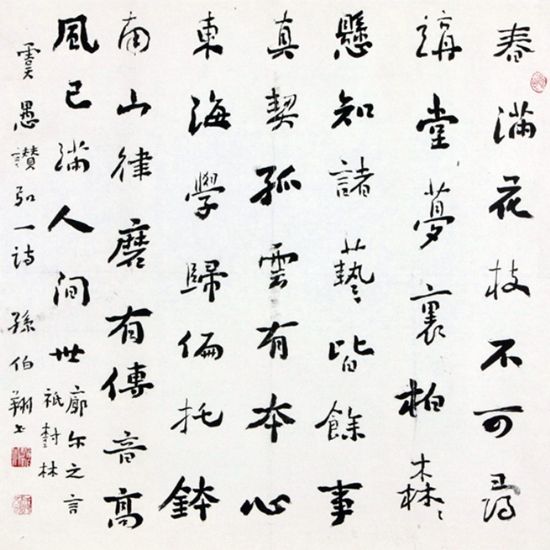 春滿花枝不可尋
講堂夢裏柏森〻
懸知諸藝皆餘事
真契孤雲有本心
東海學歸偏托鉢
南山律磨有傳音高
風已滿人間世
廓尔亡言
祇樹林
虞愚讚弘一詩 孫伯翔书